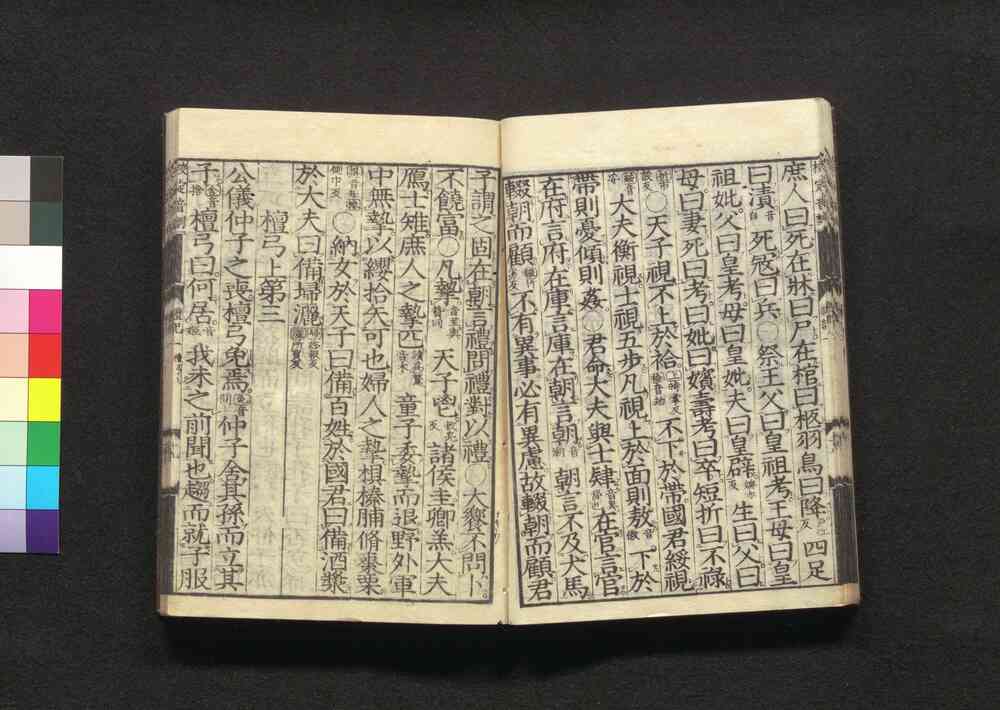 庶人曰死在牀曰尸在棺曰柩羽鳥曰降四足
曰漬音自死寇曰兵○祭王父曰皇祖考王母曰皇
祖妣父曰皇考母曰皇妣夫曰皇辟生曰父曰
母曰妻死曰考曰妣曰嬪壽考曰卒短折曰不祿
○天子視不上於袷不下於帶國君綏視
大夫衡視士視五步凡視上於面則敖音傲下於
帶則憂傾則姦○君命大夫與士肄在官言官
在府言府在庫言庫在朝言朝音潮朝言不及犬馬
輟朝而顧不有異事必有異慮故輟朝而顧君
子謂之固在朝言禮問禮對以禮○大饗不問卜
不饒富○凡摯天子鬯諸侯圭卿羔大夫
鴈士雉庶人之摯匹音木童子委摯而退野外軍
中無摯以纓拾矢可也婦人之摯椇榛脯脩棗栗
○納女於天子曰備百姓於國君曰備酒漿
於大夫曰備埽灑
檀弓上第三
公儀仲子之喪檀弓免焉仲子舍其孫而立其
子檀弓曰何居音姬我未之前聞也趨而就子服